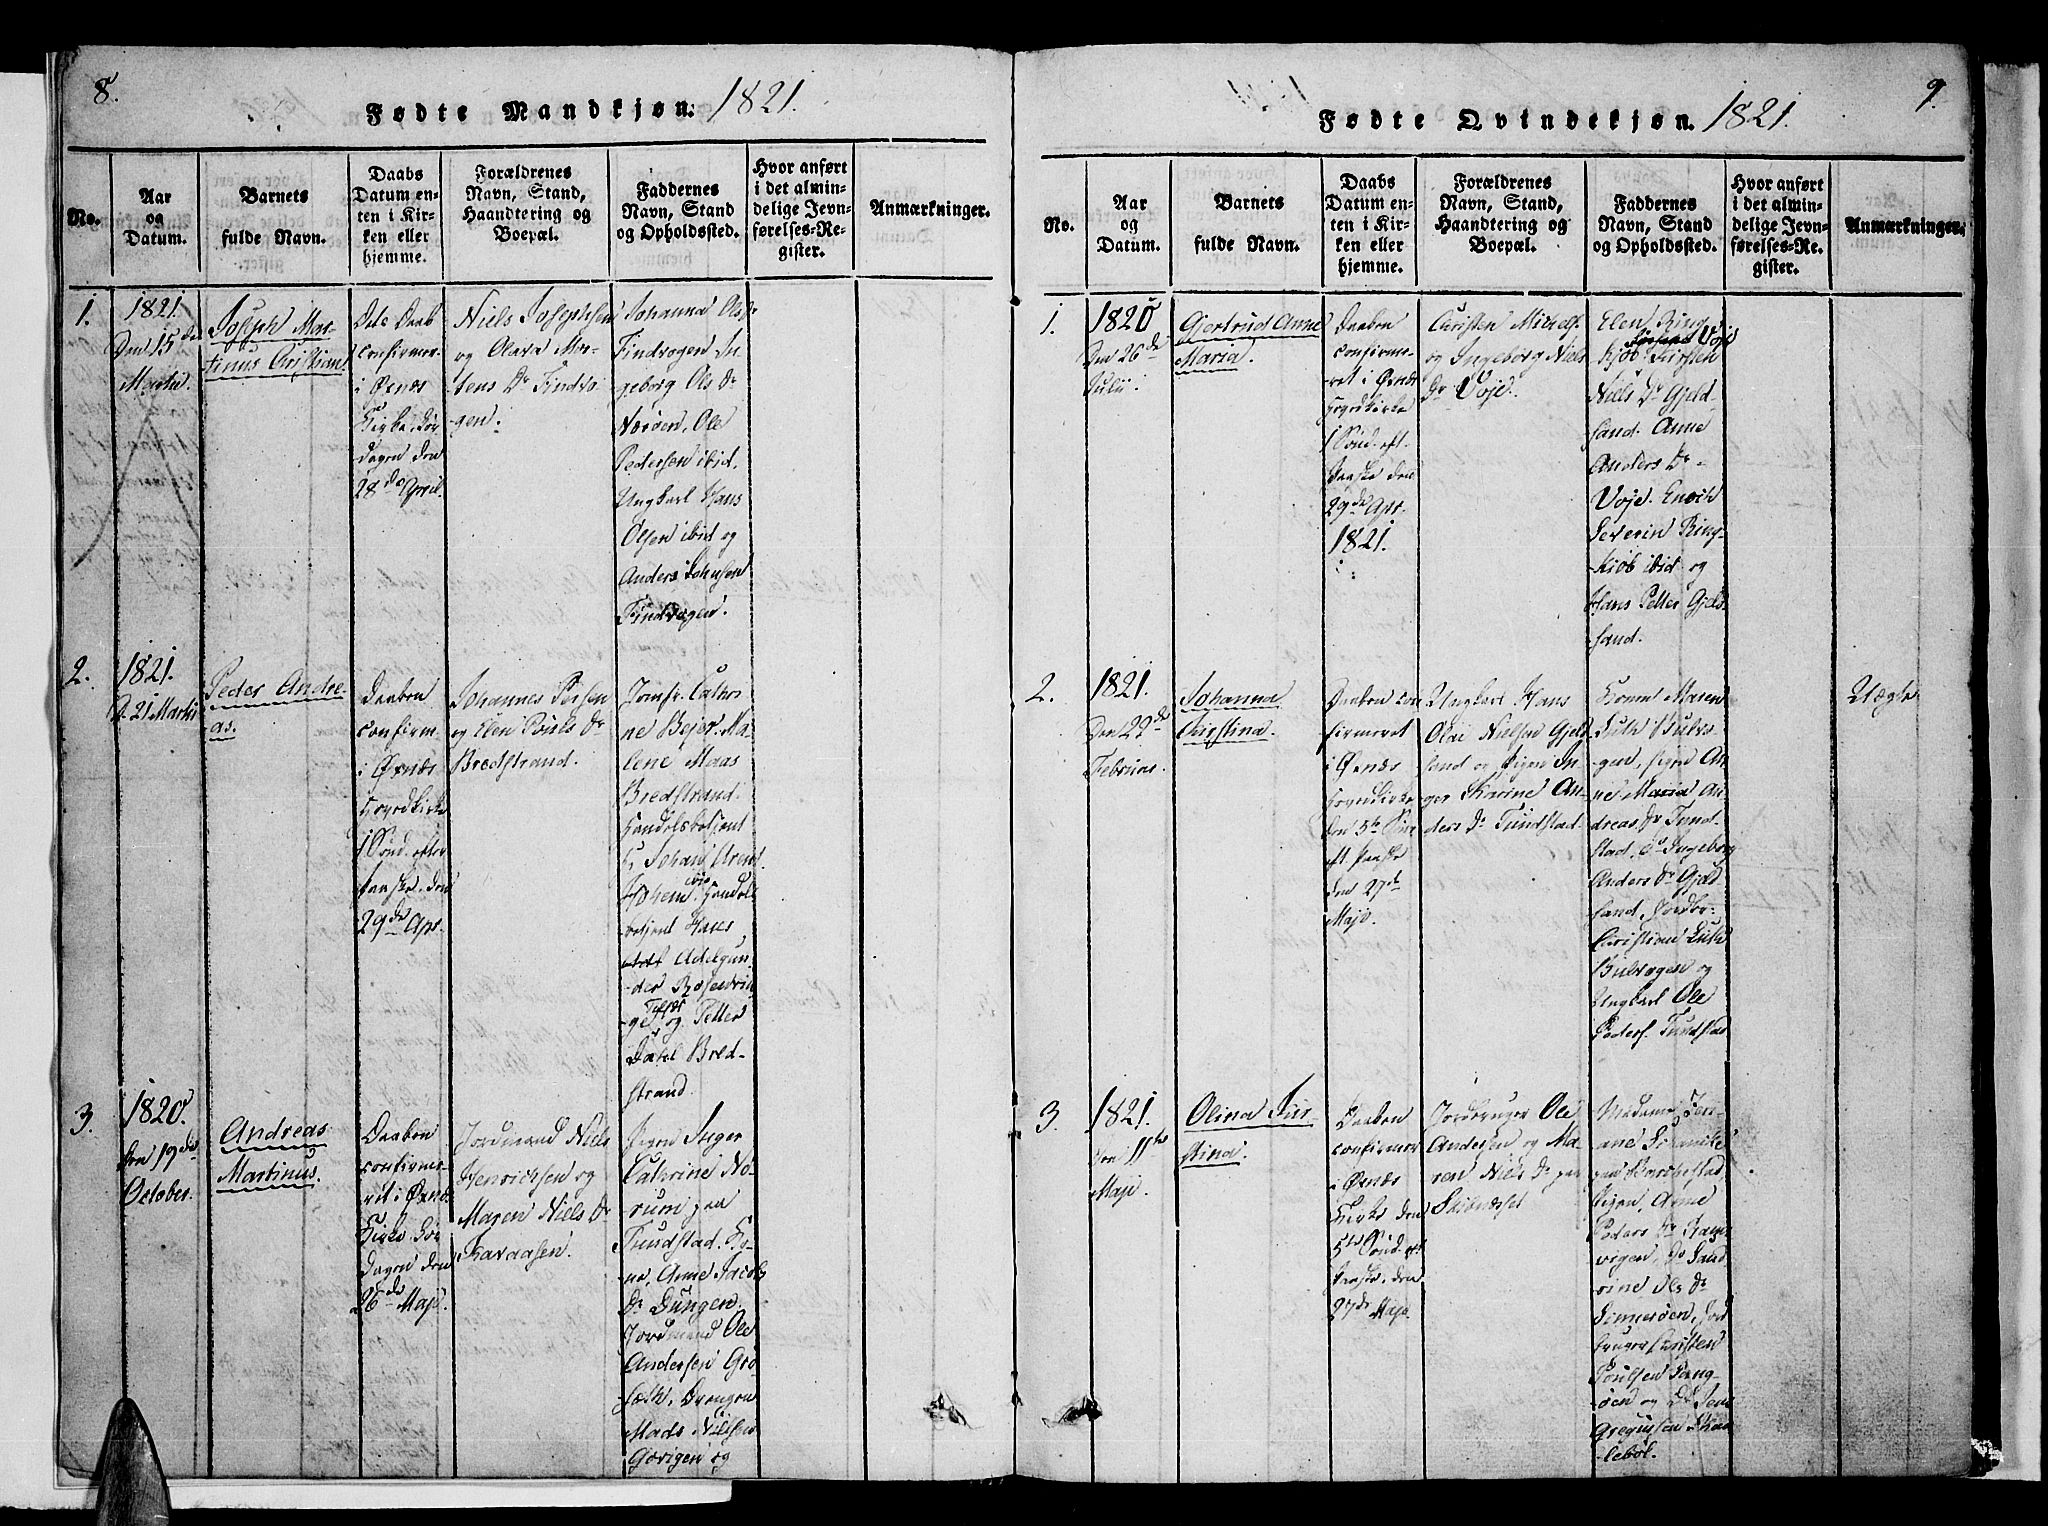 8.
Fødte Mandkjøn. 1821.
No.
Aar
og
Datum.
Barnets
fulde Navn.
Daabs
Datum en-
ten i Kir-
ken eller
hjemme.
Forældrenes
Navn, Stand,
Haandtering og
Boepæl.
Faddernes
Navn, Stand
og Opholdssted.
Hvor anført
i det almin-
delige Jevn-
førelses-Re-
gister.
Anmærkninger.
1.
1821.
Den 15de
Martii
Joseph Mar-
tinus Cristian
Dets Daab
confirmer.
i Øxnæs
Kirke, Lør-
dagen den
28de April.
Niels Josephsen
og Olava Mor-
tens Dr Findvo-
gen.
Johanna Ols Dr
Findvogen. In-
geborg Ols Dr
Nærøen. Ole
Pedersen ibid.
Ungkarl Hans
Olsen ibid og
Anders Johnsen
Findvogen.
2.
1821.
D. 21 Martii
Peder Andre-
as.
Daaben
confirm.
i Øxnæs
Hovedkirke
1 Sønd. efter
Paaske, den
29de Apr.
Johannes Persen
og Elen Pouls Dr
Bredstrand.
Jomfr. Cathri-
ne Bejer. Ma-
lene Maas
Bredstrand.
Handelsbetjent
Hr Johan Arent
Hohem ibid. Handels
betjent Hans
Adelgun-
der Rosendvin-
ge og Petter
Dahl Bred-
strand.
3.
1820.
Den 19de
October.
Andreas
Martinus.
Daaben
confirme-
ret i Øxnæs
Kirke Lør-
dagen den
26de Maji.
Jordmand Niels
Henrichsen og
Maren Niels Dr
Kavaasen.
Pigen Inger
Cathrine No-
rum paa
Tundstad. Ko-
ne, Anne Jacobs
Dr Dungen.
Jordmand Ole
Andersen Grø-
sæth. Drengen
Mads Nilsen
Gavigen og
9.
Fødte Qvindekjøn. 1821.
No.
Aar
og
Datum.
Barnets
fulde Navn.
Daabs
Datum en-
ten i Kir-
ken eller
hjemme.
Forældrenes
Navn, Stand,
Haandtering og
Boepæl.
Faddernes
Navn, Stand
og Opholdssted.
Hvor anført
i det almin-
delige Jevn-
førelses-Re-
gister.
Anmærkninger.
1.
1820
Den 26de
Julii.
Gjertrud Anne
Maria.
Daaben
confirme-
ret i Øxnæs
Hovedkirke
1 Sønd. eft.
Paaske den
29de Apr.
1821.
Christen Michels.
og Ingeborg Niels
Dr Voje.
Elen Ring-
kjøb Voje
Niels Dr Gjeld-
sand. Anne
Anders Dr
Voje. Enoch
Severin Ring-
kjøb ibid og
Hans Petter Gjels-
sand.
2.
1821.
Den 22de
Februar.
Johanna
Christina.
Daaben con-
firmeret
i Øxnæs
Hovedkirke
den 5te Søn.
eft. Paaske
den 27de
Maji.
Ungkarl Hans
Olai Nielsen Gjeld-
sand og Pigen In-
ger Karine An-
ders Dr Tundstad.
Konen Maren
Luth Bulvo-
gen, Pigen An-
ne Maria An-
dreas Dr Tund-
stad, Dr Ingeborg
Anders Dr Gjeld-
sand, Jordbr.
Christian Luth
Bulvogen og
Ungkarl Ole
Peders. Tundstad
Uægte
3.
1821.
Den 11te
Maji.
Olina Chir-
stina.
Daaben
confirmer.
i Øxnæs
Kirke den
5te Sønd. eft.
Paaske, den
27de Maji.
Jordbruger Ole
Andersen og Ma-
ren Niels Dr paa
Skibnæset
Madame
paa Barkestad,
Pigen Anne
Peders Dr
vigen, Dr Sand-
rine Ols Dr
Tinnesøen, Jord-
bruger Christen
Poulsen Lang-
øen og Dr Jens
Gregusen Skaa-
lebøl.